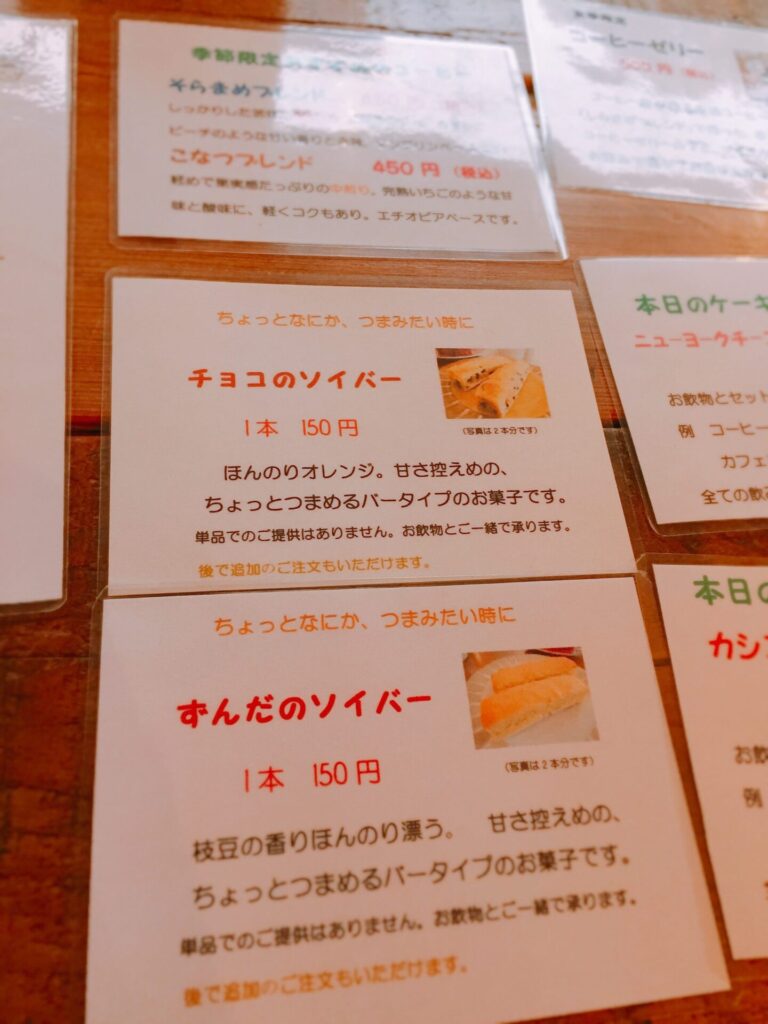 季節限定
そらまめブレンド
しっかりした
ピーチのような甘い香りと
こなつブレンド 450円(税込)
軽めで果実感たっぷりの中煎り。完熟いちごのような甘
味と酸味に、軽くコクもあり。エチオピアベースです。
コーヒーゼリー
500円(税込)
ちょっとなにか、つまみたい時に
チョコのソイバー
1本 150円
(写真は2本分です)
ほんのりオレンジ。甘さ控えめの、
ちょっとつまめるバータイプのお菓子です。
単品でのご提供はありません。お飲物とご一緒で承ります。
後で追加のご注文もいただけます。
本日のケーキ
ニューヨークチーズ
お飲物とセット
例 コーヒー
カフェ
全ての飲み
ちょっとなにか、つまみたい時に
ずんだのソイバー
1本 150円
(写真は2本分です)
枝豆の香りほんのり漂う。 甘さ控えめの、
ちょっとつまめるバータイプのお菓子です。
単品でのご提供はありません。お飲物とご一緒で承ります。
後で追加のご注文もいただけます。
本日の
カシ
お飲
例